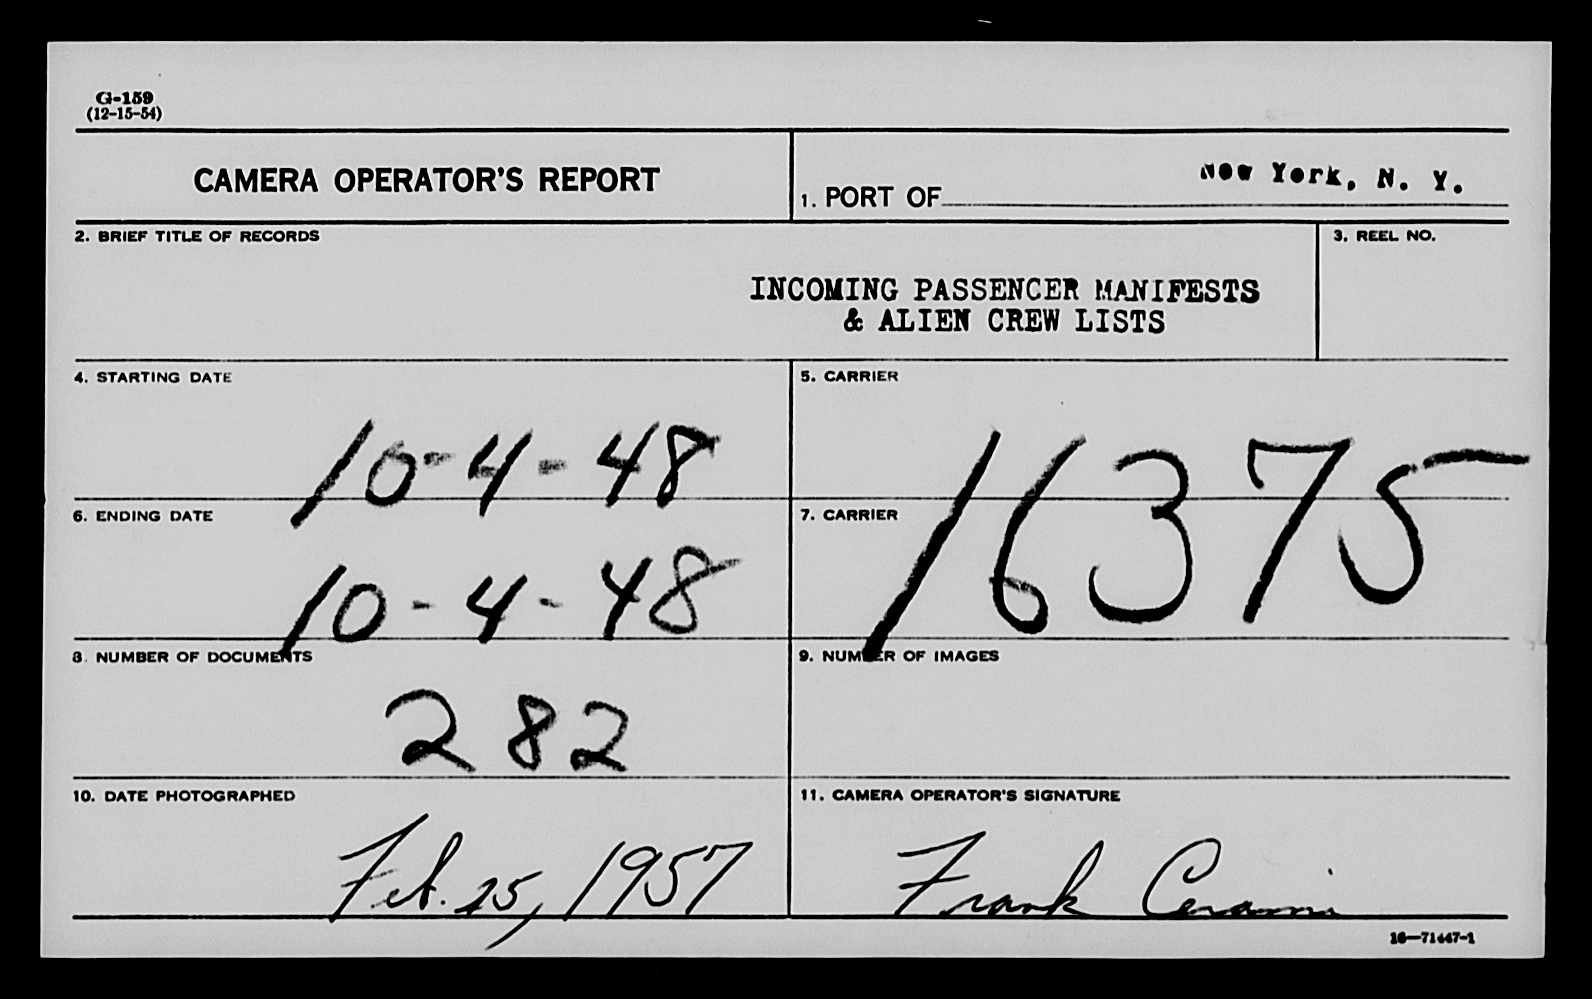 G-159
(12-15-54)
CAMERA OPERATOR'S REPORT
1. PORT OF New York, N. Y.
2. BRIEF TITLE OF RECORDS
3. REEL NO.
INCOMING PASSENGER MANIFESTS
& ALIEN CREW LISTS
4. STARTING DATE
10-4-48
5. CARRIER
16375
6. ENDING DATE
10-4-48
7. CARRIER
8. NUMBER OF DOCUMENTS
282
9. NUMBER OF IMAGES
10. DATE PHOTOGRAPHED
Feb. 25, 1957
11. CAMERA OPERATOR'S SIGNATURE
Frank
16—71447-1